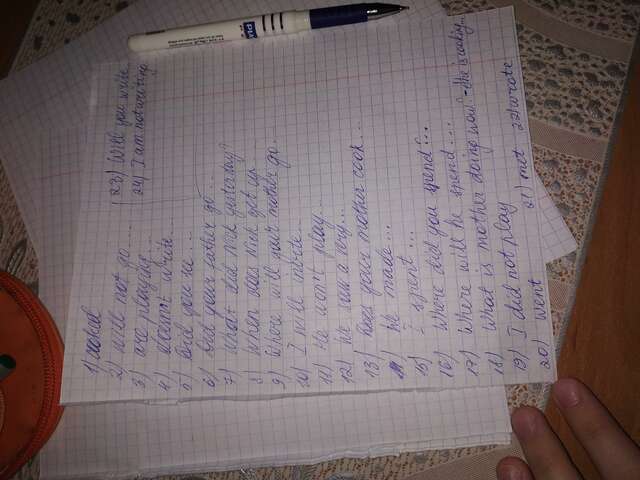 2) will not go....
3) are playing...
4) doesn't write...
5) Did you see...
6) Did your father go...
7) What did Nick yesterday?
8) When does Nick get up...
9) Where will your mother go.
10) I will invite...
11) He won't play...
12) We saw a very...
13) Does your mother cook...
14) We made...
15) I spent...
16) Where did you spend?...
17) Where will he spend...
18) What is mother doing now? - She is cooking...
19) I did not play
20) went 21) met 22) wrote
23) Will you write
24) I am not writing